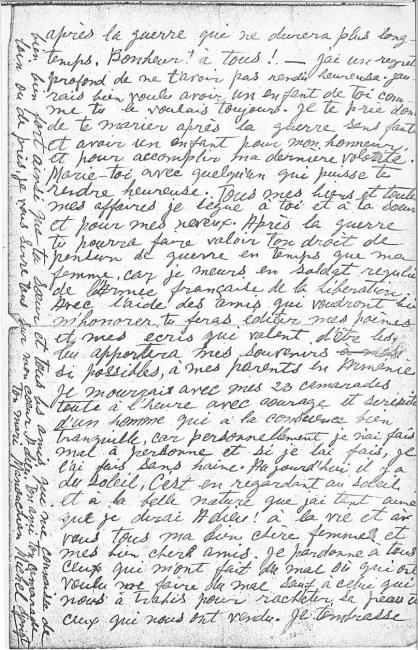 après la guerre que ne durera plus long-
temps. Bonheur! à tous! — j'ai un regret
profond de ne t'avoir pas rendu heureuse. jau
rais bien voulu avoir un enfant de toi com
me tu le voulais toujours. Je te prie donc
de te marier après la guerre sans faute
et avoir un enfant pour mon honneur
et pour accomplir ma dernière volonté.
Marie-toi avec quelqu'un qui puisse te
rendre heureuse. Tous mes biens et toutes
mes affaires je lègue à toi et à ta sœur
et pour mes neveux. Après la guerre
tu pourra faire valoir ton droit de
pension de guerre en temps que ma
femme, car je meurs en soldat regulier
de l'Armée française de la Libération.
Avec l'aide des amis qui voudront bien
m'honorer, tu feras editer mes poèmes
et mes ecris qui valent d'être lus.
tu apportera mes souvenirs
si possibles, à mes parents en Arménie
Je mourrais avec mes 23 camarades
toute à l'heure avec courage et serenité
d'un homme qui à la conscience bien
tranquille, car personnellement, je n'ai fais
mal à personne et si je l'ai fais, je
l'ai fais sans haine. Aujourd'hui il y a
du soleil, C'est en regardant au soleil
et à la belle nature que j'ai tant aimé
que je dirai Adieu! à la vie et à
vous tous ma bien chère femme et
mes bien chers amis. Je pardonne à tous
ceux qui m'ont fait du mal ou qui ont
voulu me faire du mal sauf à celui qui
nous à trahis pour racheter sa peau et
ceux qui nous ont vendu. Je t'embrasse
bien bien fort ainsi que ta sœur et tous les amis qui me connaisse de
loin ou de près, je vous serre tous sur mon cœur. Adieu. Ton ami Ton camarade
Ton mari Manouchian Michel